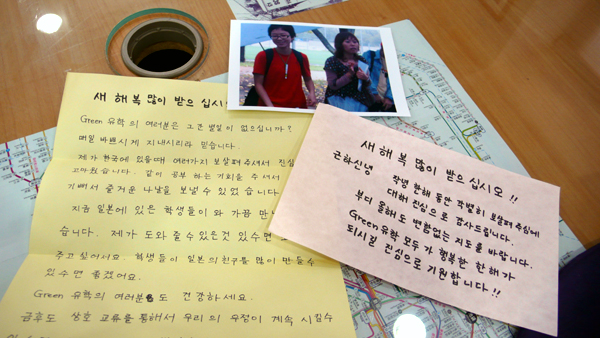 새 해 복 많이 받으 십시
Green 유학의 여러분은 그간 별일이 없으십니까?
매일 바쁘시게 지내시리라 믿습니다.
제가 한국에 있을때 여러가지 보살펴 주셔서 진심
고마웠습니다. 같이 공부 하는 기회를 주셔서
기뻐서 즐거운 나날을 보낼수 있었습니다
지금 일본에 있은 학생들이 와 가끔 만나
습니다. 제가 도와 줄수 있은것 있수면
주고 싶어요. 학생들이 일본의친구를 많이 만들수
있수면 좋겠어요.
Green 유학의 여러분도 건강하세요.
금후도 상호 교류를 통해서 우리의 우정이 계속 시킬수
새 해 복 많이 받으 십시오 !!
근하신년
작년 한해 동안 각별히 보살펴 주심에
대해 진심으로 감사드립니다.
부디 올해도 변함없는 지도를 바랍니다.
Green유학 모두가 행복한 한해가
되시길 진심으로 기원합니다 !!